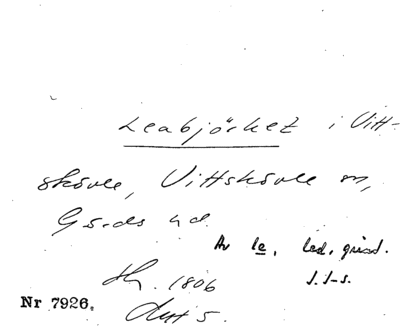 Leabjörket i Vitt-
skövle, Vittskövle sn,
Gärds hd.
Av le, led, grind.
J. J-s.
1806
Nr 7926.